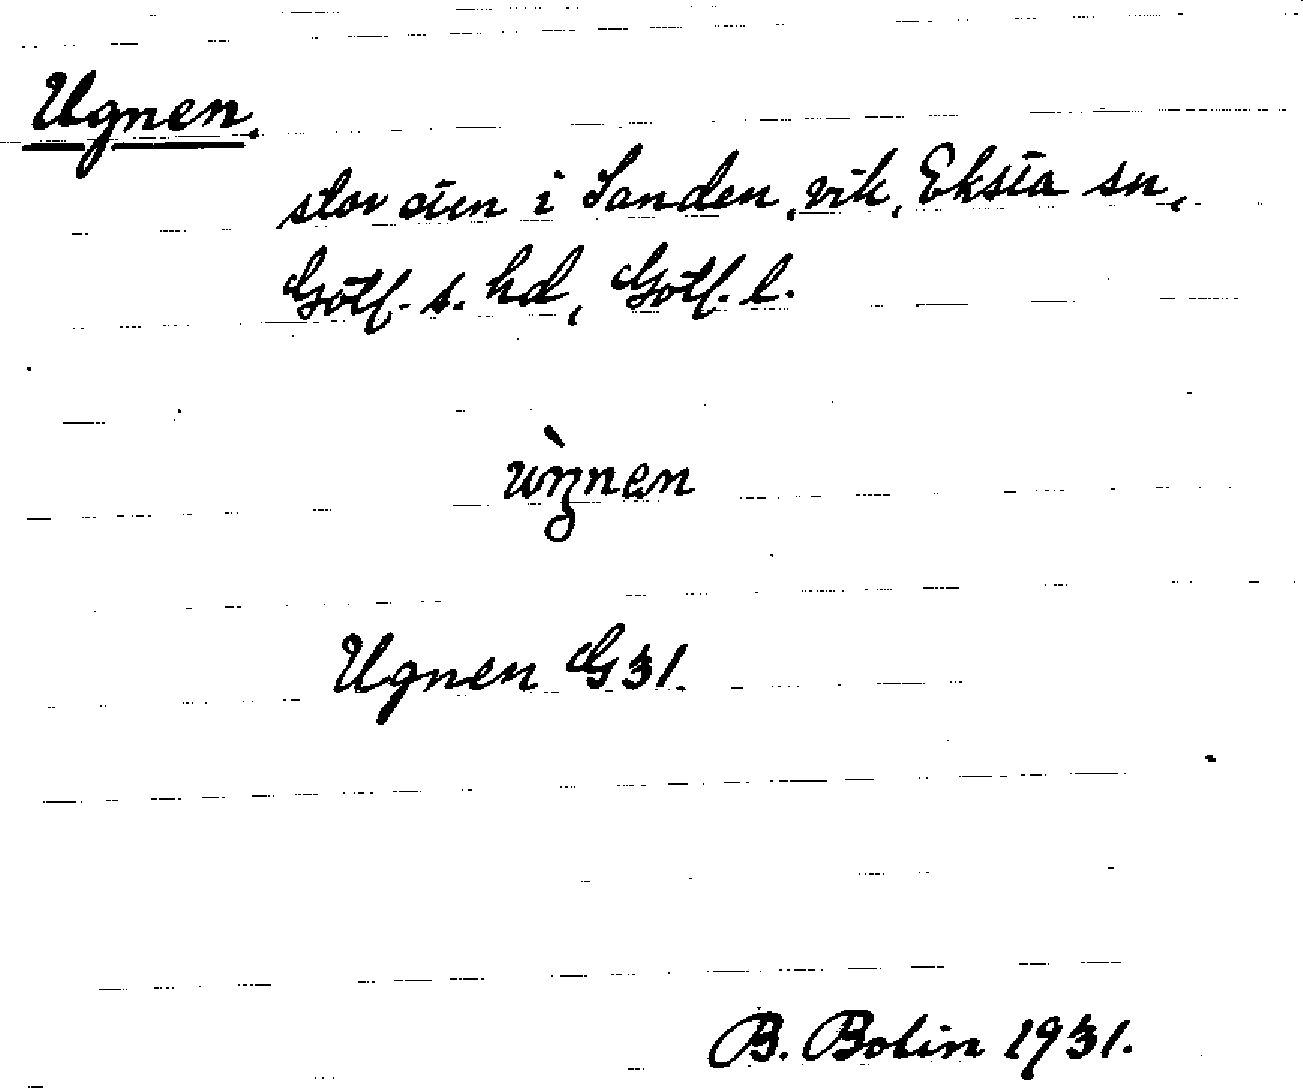 Ugnen.
stor sten i Sanden, vik, Eksta sn,
Gotl. s. hd, Gotl. l.
Ugnen G31.
B. Bolin 1931.